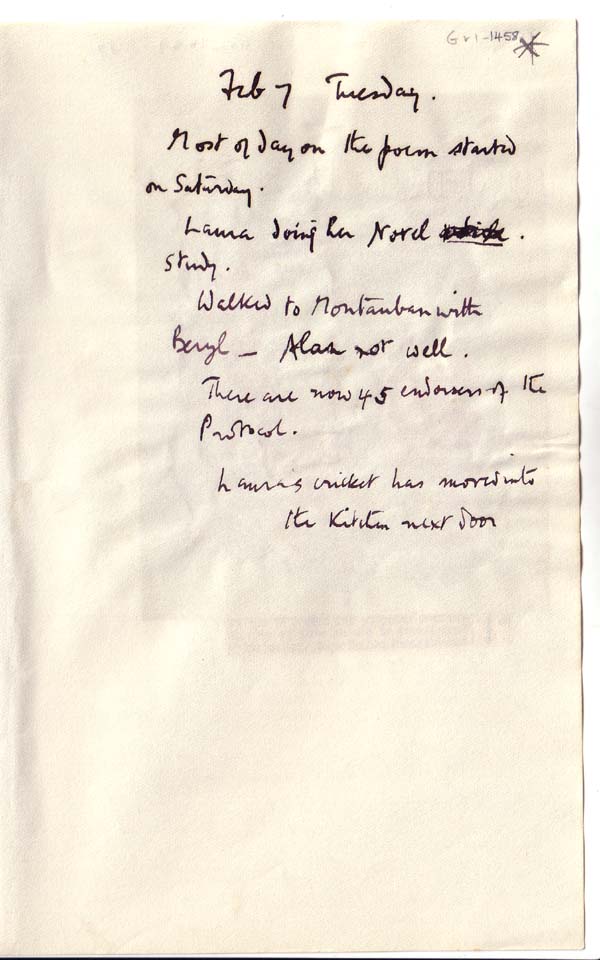 Gv1-1458
Feb 7 Tuesday.
Most of day on the poem started
on Saturday.
Laura doing her Novel .
Study.
Walked to Montauban with
Beryl — Alan not well.
There are now 45 endorsers of the
Protocol.
Laura's cricket has moved into
the Kitchen next door